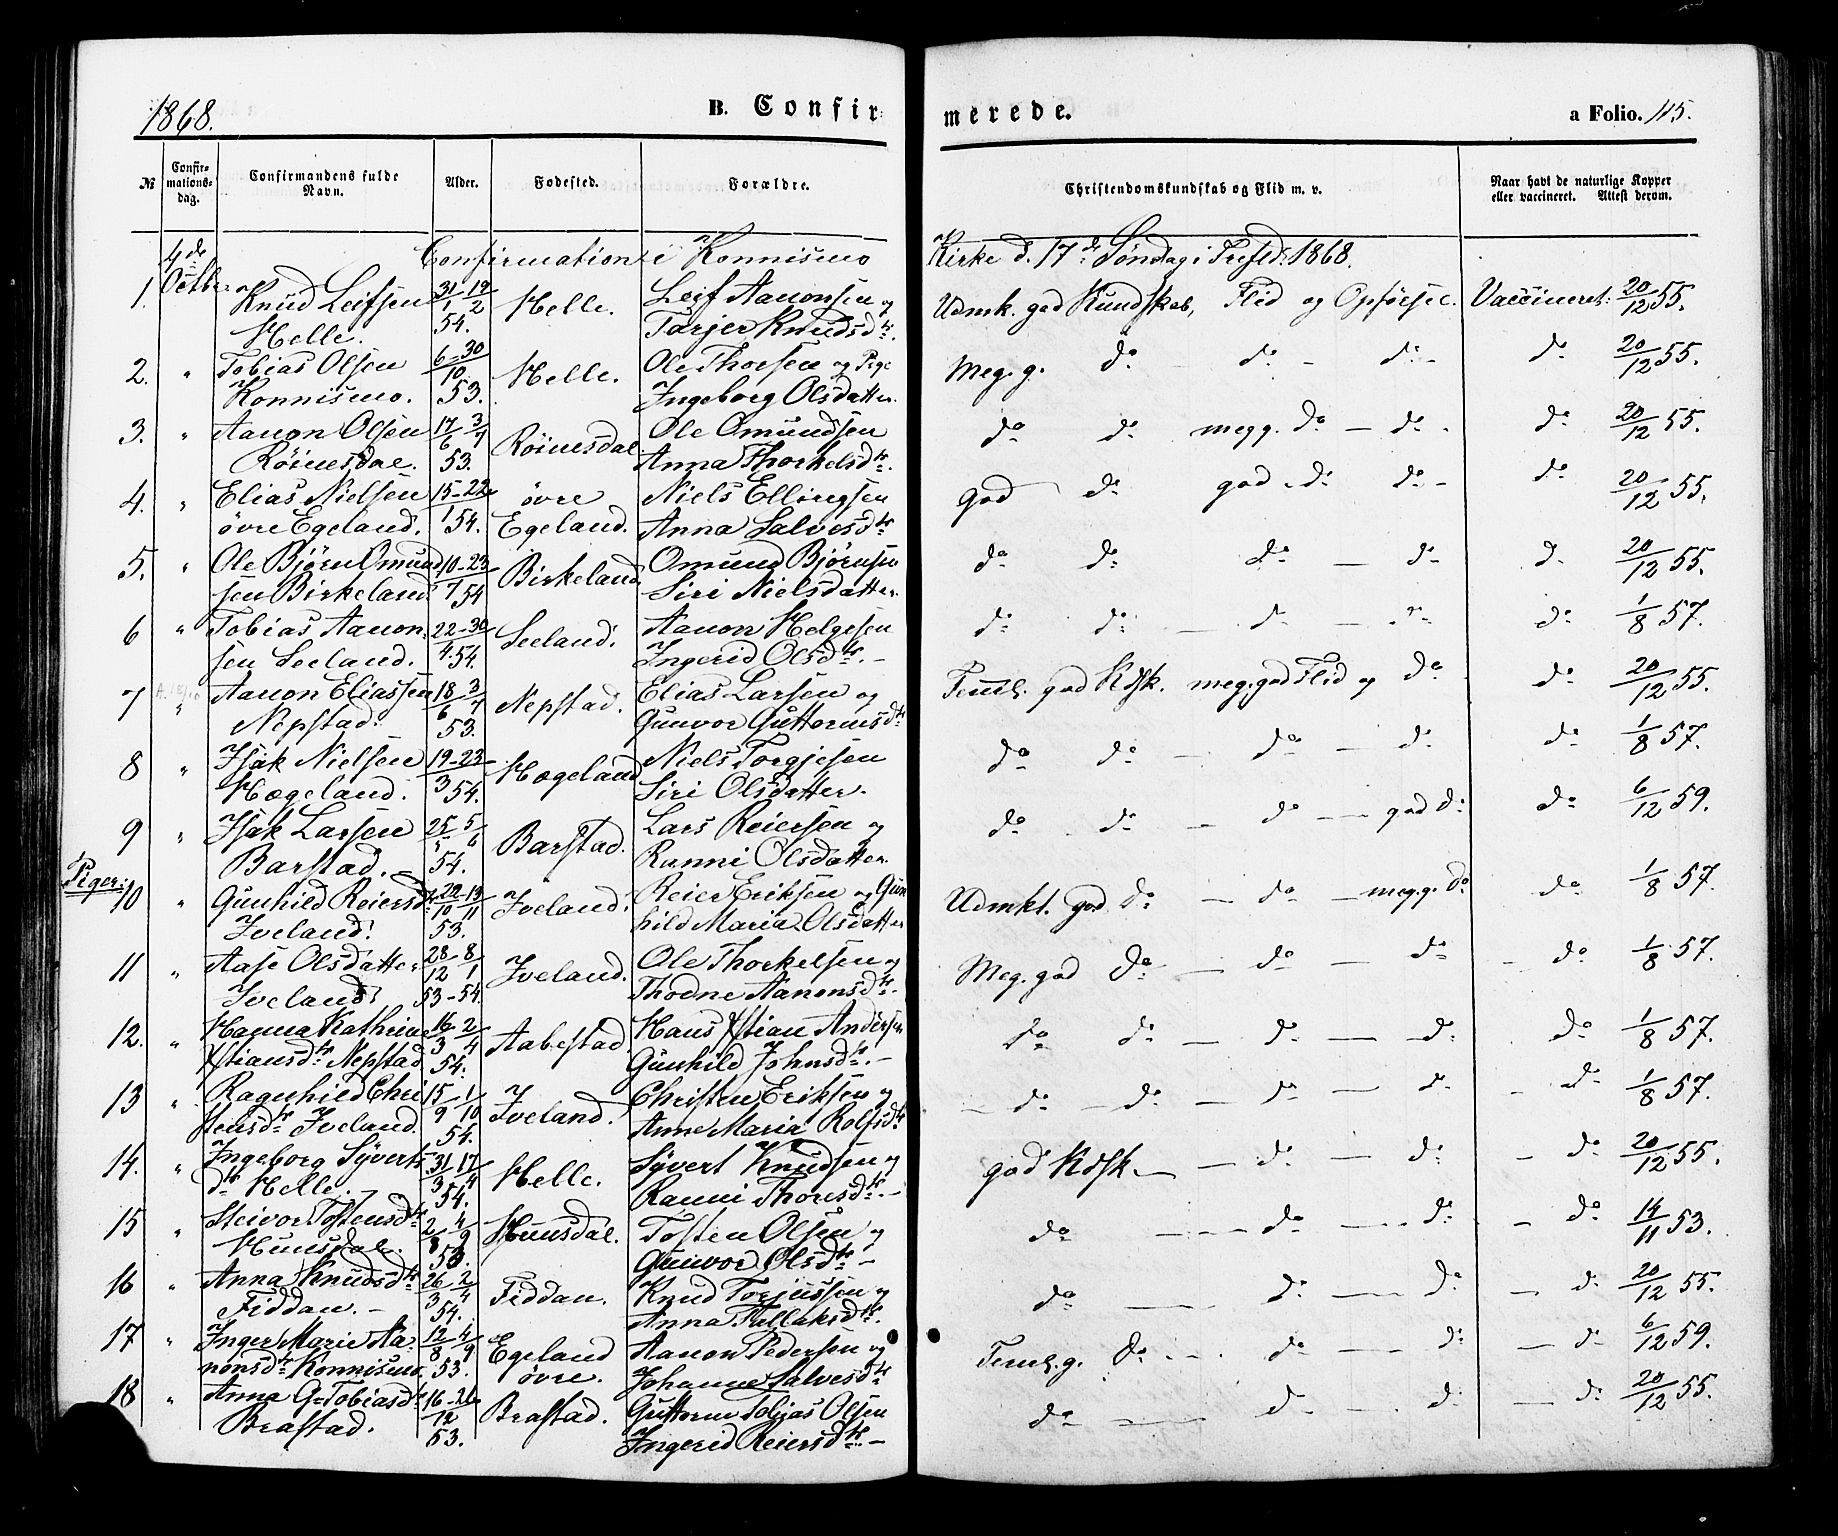 1868.
B. Confirmerede.
a Folio. 115.
№ Confirmationsdag. Confirmandens fulde Navn. Alder. Fødested. Forældre. Christendomskundskab og Flid m. v. Naar havt de naturlige Kopper eller vaccineret. Attest derom.
4de Octbr Confirmation i Konnismo Kirke d. 17de Søndag i Trefd: 1868.
1. Knud Leifsen 31/1 - 12/2 54. Helle. Leif Aanonsen og Udmk. god Kundskab, Flid og Opførsel. Vaccineret: 20/12 55.
Helle. Tarjer Knudsdtr.
2. " Tobias Olsen 6-30/10. 53. Helle. Ole Thorsen og Pige Meg. g. do - do - do - do 20/12 55.
Konnismo. Ingeborg Olsdatter.
3. " Aanon Olsen 17/6 3/7 53. Røinesdal. Ole Omundsen do do megg. do - do - do 20/12 55.
Røinesdal. Anna Thorkelsdtr.
4. " Elias Nielsen 15-22/1 54. øvre Egeland. Niels Ellingsen god do god - do do - do 20/12 55.
øvre Egeland. Anna Salvesdtr
5. " Ole Bjørn Omund 10-23/7 54 Birkeland Omund Bjørnsen do do do - do d. 20/12 55.
sen Birkeland. Siri Nielsdatter
6 " Tobias Aanon 22-30/4. 54. Seeland. Aanon Helgesen do do - do - do do 1/8 57.
sen Seeland. Ingerid Olsdtr. -
7 " Aanon Eliassen 18/6 3/7 53. Nepstad. Elias Larsen og Temml. god Kdsk. meg. god Flid og do do 20/12 55.
Nepstad. Gunvor Guttormsdtr
8 " Isak Nielsen 19-23/3 54. Hægeland Niels Torgjesen do do - do - do do 1/8 57.
Hægeland. Siri Olsdatter.
9 " Isak Larsen 25/5 5/6 54. Barstad. Lars Reiersen og do. do - do - god do do 6/12 59.
Barstad. Ranni Olsdatter
Piger:
10 " Gunhild Reiersdtr 29/10 13/11 53. Iveland. Reier Eriksen og Gun Udmkt. god do - do - meg. g. do do 1/8 57.
Iveland. hild Maria Olsdatter
11 " Aase Olsdatter 28/12 8/1 53-54. Iveland. Ole Thorkelsen og Meg. god do - do - do - do 1/8 57.
Iveland. Thodne Aanonsdtr.
12. " Hanna Kathrine 16/3 2/4 54. Aabestad Hans Xstian Andersen do do - do - do do 1/8 57.
Xstiansdtr Nepstad Gunhild Johnsdtr. -
13 " Ragnhild Chri 15/9 1/10 54. Iveland. Christen Eriksen og - do - do - do - do - do 1/8 57.
stensdtr Iveland. Anne Maria Rolfsdtr
14. " Ingeborg Syverts 31/3 17/4 54. Helle. Syvert Knudsen og god Kdsk. - do - do - do 20/12 55.
dtr Helle. - Ranni Thoresdtr. -
15 " Steivor Tostensdtr 2/8 4/9 53. Hunsdal. Tosten Olsen og do - do - do - do 14/11 53.
Hunsdal. Gunvor Olsdtr -
16 " Anna Knudsdtr 26/3 2/4 54. Fiddan. Knud Torjussen og do - do - do - do 20/12 55.
Fiddan. - Anna Tallaksdtr.
17 " Inger Marie Aa- 12/8 4/9 53. Egeland øvre. Aanon Pedersen og Teml. g. do - do - do - do 6/12 59.
nonsdtr Konnismo. Johanne Salvesdtr
18 " Anna G. Tobiasdtr 16-26/12 53. Brastad. Guttorm Tobias Olsen do - do - do - do 20/12 55.
Brastad. Ingerid Reiersdtr. -